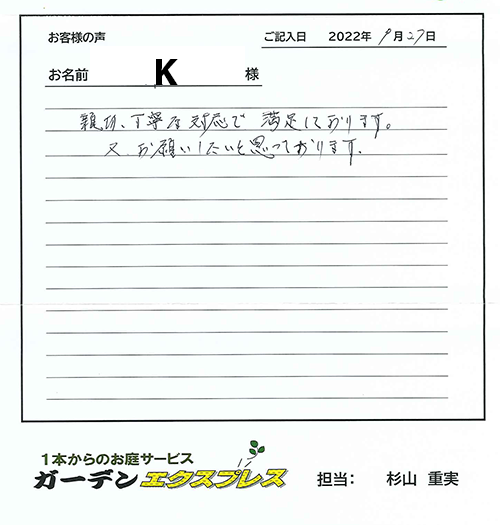 お客様の声
ご記入日 2022年 9月27日
お名前 K 様
親切、丁寧な対応で 満足しております。
又、お願いしたいと思っております。
1本からのお庭サービス
ガーデンエクスプレス
担当： 杉山 重実